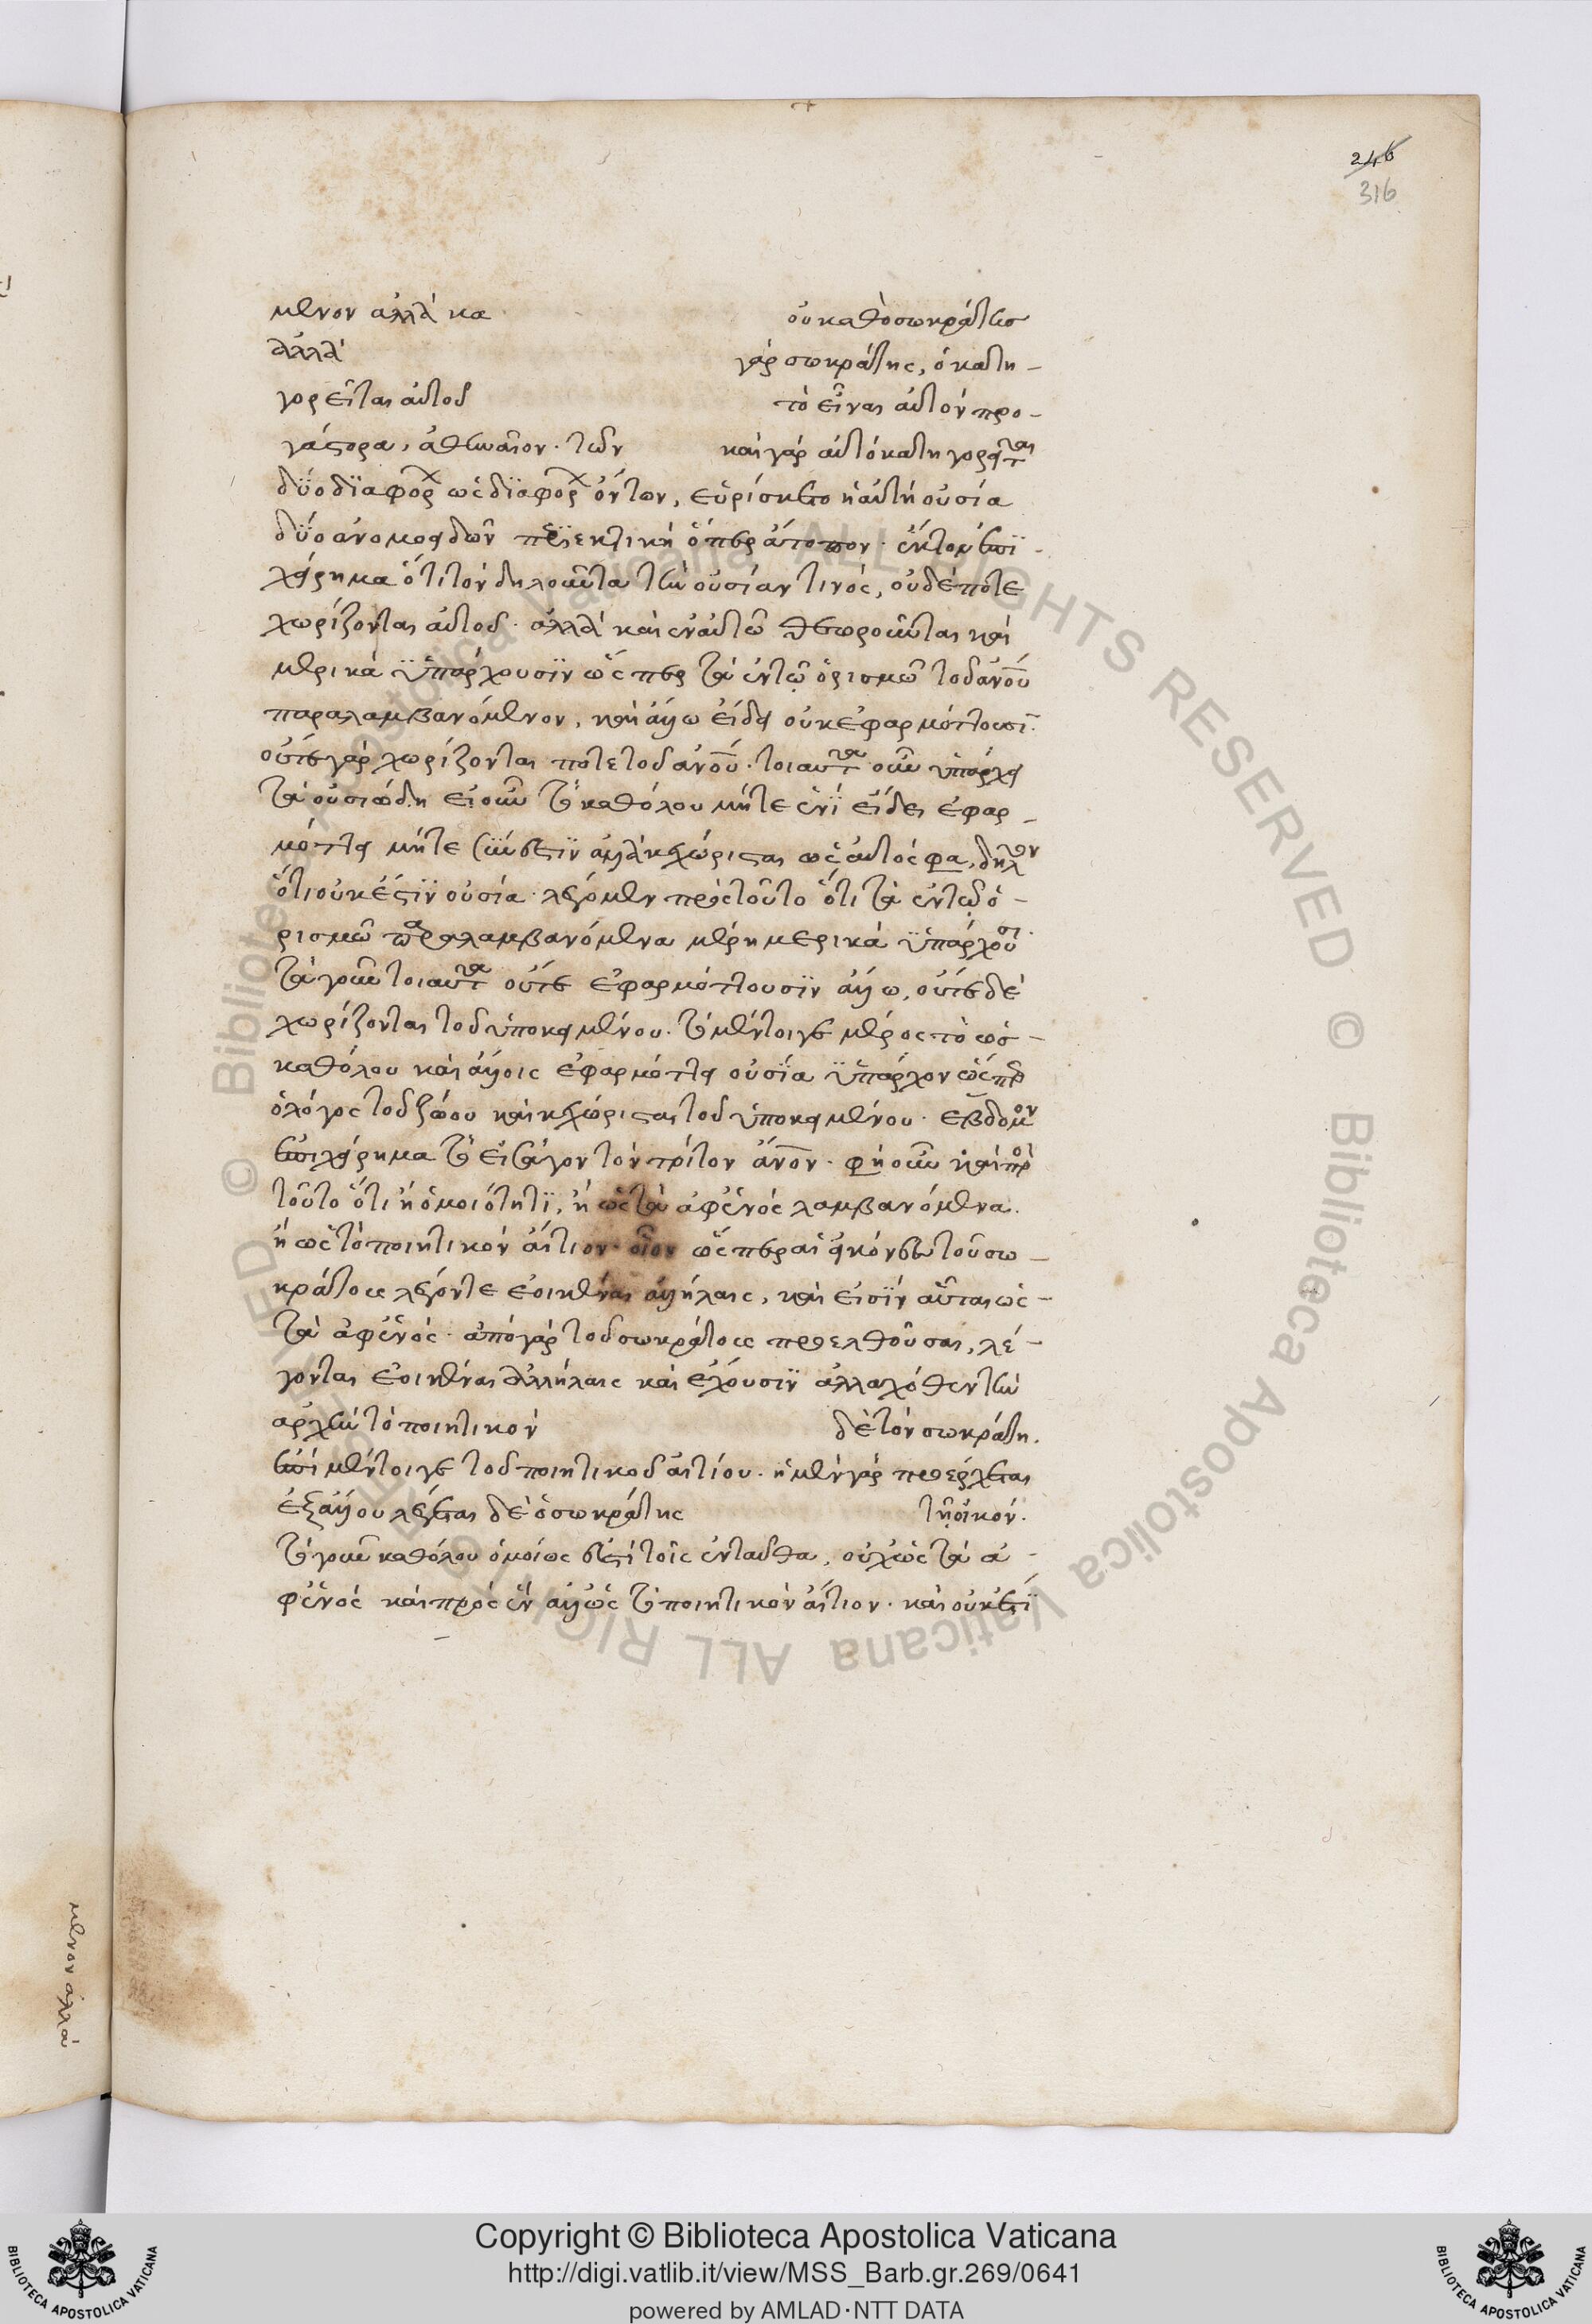 246
316
μενον ἀλλὰ κα οὐ καθὸ σωκράτης
ἀλλὰ γὰρ σωκράτης, ὁ κατη-
γορεῖται αὐτοῦ τὸ εἶναι αὐτὸν προ-
γάστορα, ἀθηναῖον. τῶν καὶ γὰρ αὐτὸ κατηγορεῖται
δύο διαφορ ὡς διαφορ ὄντων, εὑρίσκεται ἡ αὐτὴ οὐσία
δύο ἀνομοειδῶν περιεκτικὴ ὅπερ ἄτοπον. ἕκτον ἐπι-
χείρημα ὅτι τὸν δηλοῦντα τὴν οὐσίαν τινός, οὐδέποτε
χωρίζονται αὐτοῦ. ἀλλὰ καὶ ἐν αὐτῶ θεωροῦνται καὶ
μερικὰ ὑπάρχουσιν ὥσπερ τὰ ἐν τῶ ὁρισμῶ τοῦ ἀνου
παραλαμβανόμενον, καὶ ἄλλω εἴδει οὐκ ἐφαρμόττουσι.
οὔτε γὰρ χωρίζονται ποτὲ τοῦ ἀνου. τοιαῦτα οὖν ὑπάρχει
τὰ οὐσιώδη εἰ οὖν τὸ καθόλου μήτε ἑνὶ εἴδει ἐφαρ-
μόττει μήτε ἀλλὰ κεχώρισται ὡς αὐτός φα, δῆλον
ὅτι οὐκ ἔστιν οὐσία. λέγομεν πρὸς τοῦτο ὅτι τὰ ἐν τῶ ὁ-
ρισμῶ παραλαμβανόμενα μέρη μερικὰ ὑπάρχουσι.
τὰ γοῦν τοιαῦτα οὔτε ἐφαρμόττουσιν ἄλλω, οὔτε δὲ
χωρίζονται τοῦ ὑποκειμένου. τὸ μέντοιγε μέρος τὸ ὡς-
καθόλου καὶ ἄλλοις ἐφαρμόττει οὐσία ὑπάρχον ὥσπερ
ὁ λόγος τοῦ ζώου καὶ κεχώρισται τοῦ ὑποκειμένου. ἕβδομον
ἐπιχείρημα τὸ εἰσάγον τὸν τρίτον ἄνον. φη οὖν καὶ πρὸς
τοῦτο ὅτι ἡ ὁμοιότητι, ἢ ὡς τὰ ἀφ' ἑνὸς λαμβανόμενα.
ἢ ὡς τὸ ποιητικὸν αἴτιον. οἷον ὥσπερ αἱ εἰκόνες τοῦ σω-
κράτους λέγονται ἐοικέναι ἀλλήλαις, καὶ εἰσὶν αὗται ὡς-
τὰ ἀφ' ἑνός. ἀπὸ γὰρ τοῦ σωκράτους προελθοῦσαι, λέ-
γονται ἐοικέναι ἀλλήλαις καὶ ἔχουσιν ἀλλαχόθεν τὴν
ἀρχὴν τὸ ποιητικὸν δὲ τὸν σωκράτη.
ἐπὶ μέντοιγε τοῦ ποιητικοῦ αἰτίου. ἡ μὲν γὰρ προέρχεται
ἐξ ἄλλου λέγεται δὲ ὁ σωκράτης τῇ εἰκόν.
τὸ γοῦν καθόλου ὁμοίως ἐστὶ τοῖς ἐνταῦθα, οὐχ ὡς τὰ ἀ-
φ' ἑνὸς καὶ πρὸς ἓν ἀλλ' ὡς τὸ ποιητικὸν αἴτιον. καὶ οὐκέτι
μενον ἀλλὰ
Copyright © Biblioteca Apostolica Vaticana
http://digi.vatlib.it/view/MSS_Barb.gr.269/0641
powered by AMLAD·NTT DATA